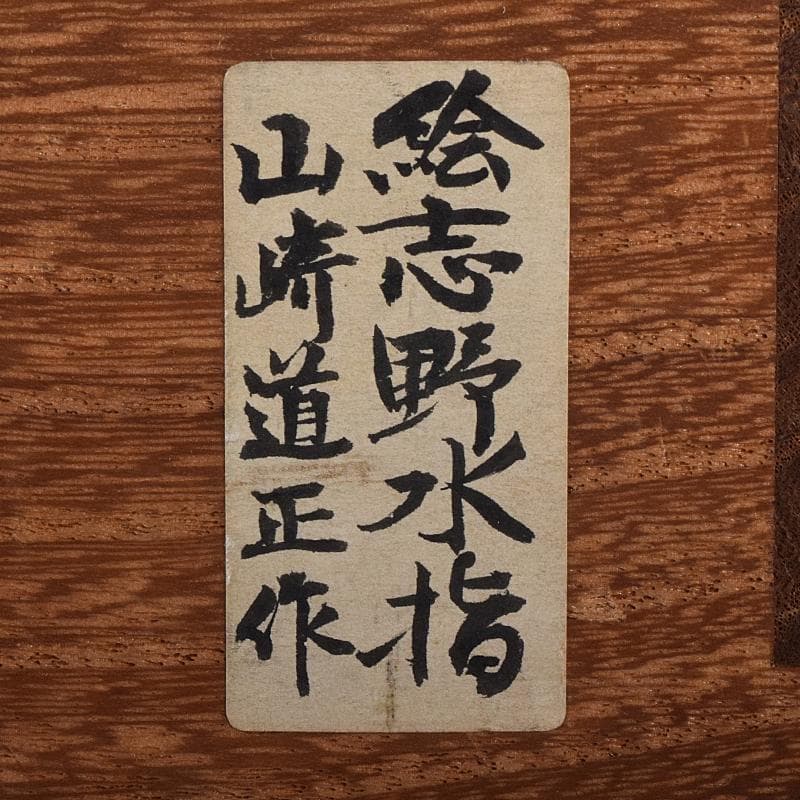 絵志野水指
山崎道正作